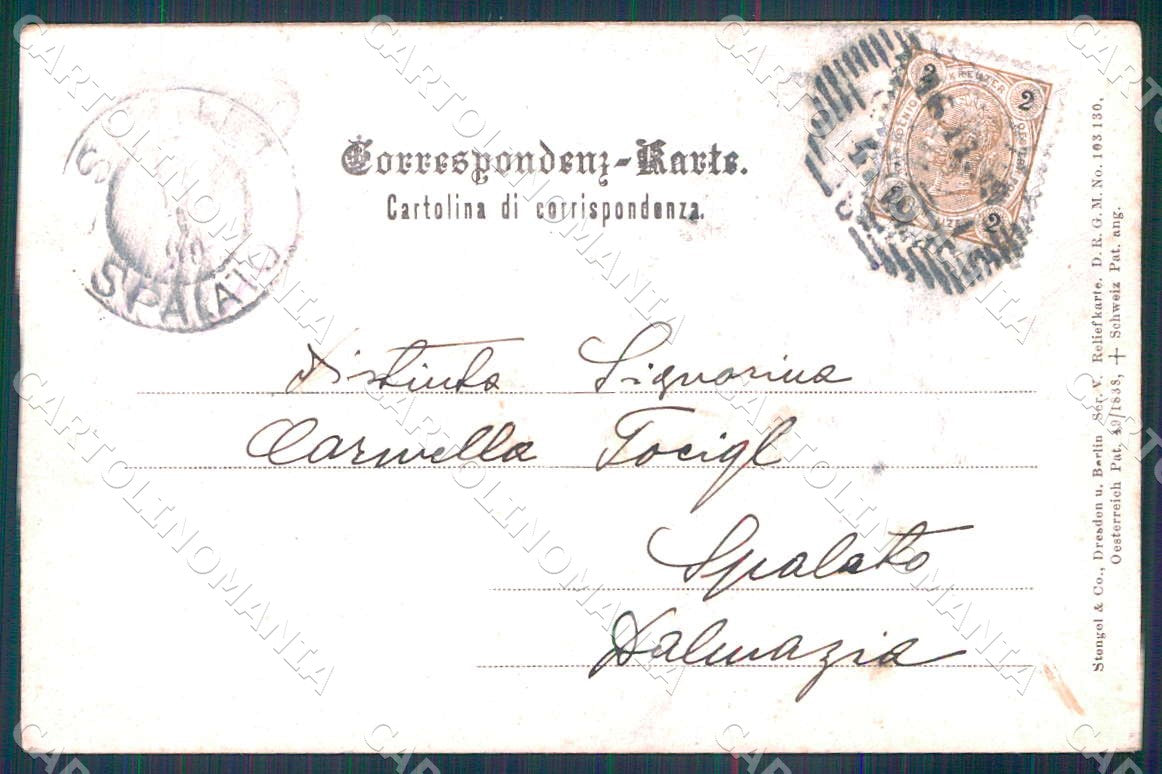 Correspondenz-Karte.
Cartolina di corrispondenza.
SPALATO
2 KREUZER 2
2
Distinta Signorina
Carmella Tocigl
Spalato
Dalmazia
Stengel & Co., Dresden u. Berlin Ser. V. Reliefkarte. D. R. G. M. No. 103 130,
Oesterreich Pat. 49/1838, + Schweiz Pat. ang.
CARTOLINOMANIA